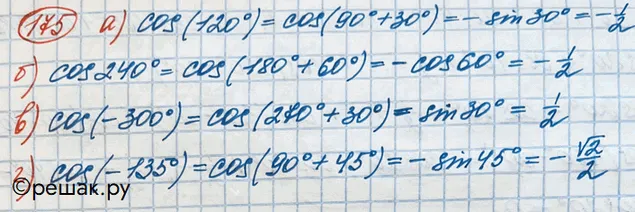 175 а) cos(120°) = cos(90° + 30°) = - sin 30° = - 1/2
б) cos 240° = cos(180° + 60°) = - cos 60° = - 1/2
в) cos(-300°) = cos(270° + 30°) = sin 30° = 1/2
г) cos(-135°) = cos(90° + 45°) = - sin 45° = - √2/2
©решак.ру